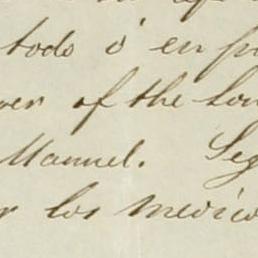 todo ó en p
ver of the Lon
Manuel. Seg
r los medico